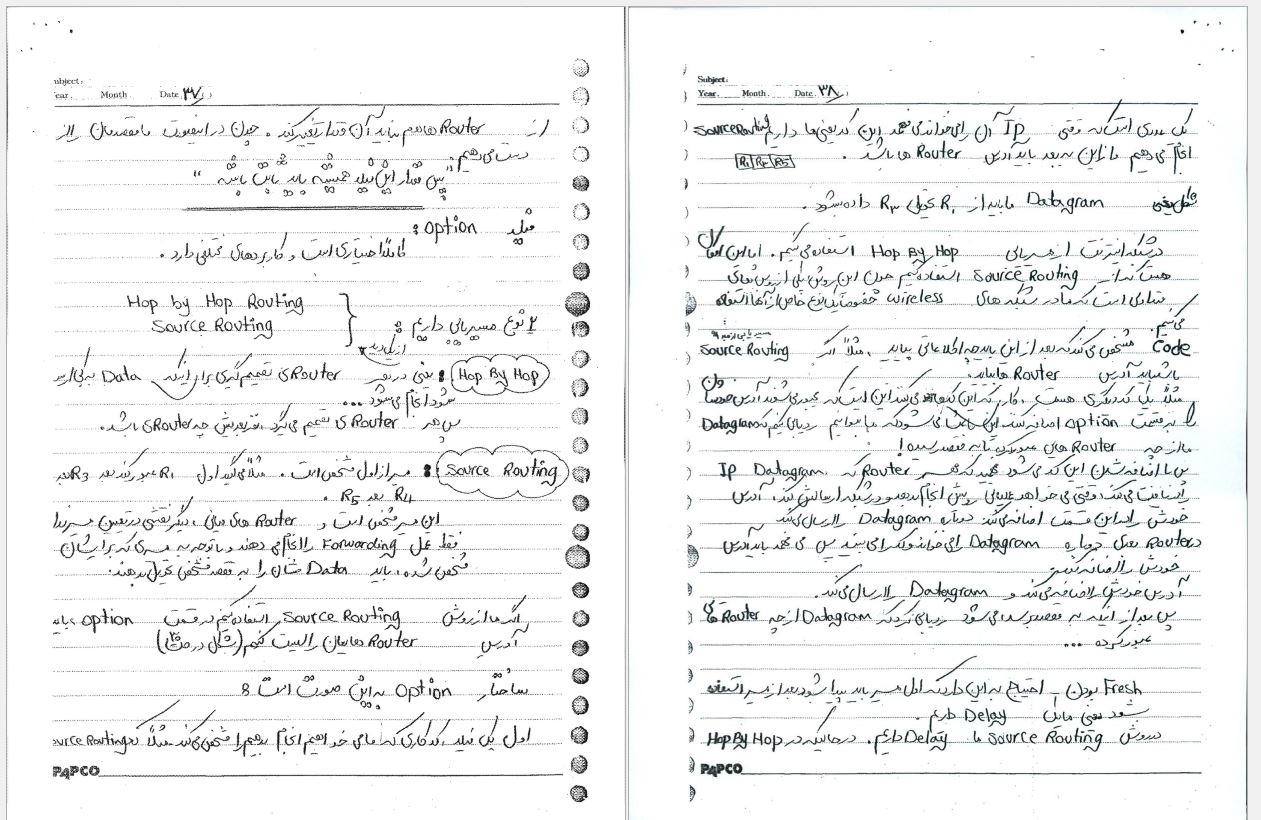 Subject:
Year. Month. Date. ۳۷
از Router ها هم نباید آن مقدار تغییر کند. چون در اینصورت ما مقدمان را از
دست می دهیم.
"پس مقدار این فیلد همیشه باید ثابت باشد"
فیلد option:
کاملاً اختیاری است و کاربردهای مختلفی دارد.
۲ نوع مسیریابی داریم:
Hop by Hop Routing
Source Routing
از یک دید
Hop By Hop : یعنی در هر Router ی تصمیم گیری برای اینکه Data به کی ارسال
شود انجام می شود...
پس هر Router ی تصمیم می گیرد، نفر بعدیش چه Router ی باشد.
Source Routing : مسیر از اول مشخص است. مثلاً می گوید اول R1 عبور کند بعد R3 بعد
R4 بعد R5.
این مسیر مشخص است و Router های میانی، دیگر نقشی در تعیین مسیر ندارند
فقط عمل Forwarding را انجام می دهند و با توجه به مسیری که برایشان
مشخص شده، باید Data شان را به مقصد مشخص تحویل بدهند.
اگر ما از روش Source Routing استفاده کنیم در قسمت option باید
آدرس Router هایمان را لیست کنیم (شکل در صفحه)
ساختار Option به این صورت است:
اول یک فیلد، کد کاری که ما می خواهیم انجام بدهیم را مشخص می کند. مثلاً کد Source Routing
PAPCO
Subject:
Year. Month. Date. ۳۸
یک عددی است که وقتی IP آن را می خواند می فهمد این کد یعنی ما داریم Source Routing
انجام می دهیم و از این به بعد باید آدرس Router ها باشد.
R1 R4 R5
شکل یعنی Datagram ما باید از R1 تحویل R4 داده شود.
در شبکه اینترنت از مسیریابی Hop By Hop استفاده می کنیم. اما این امکان
هست که از Source Routing استفاده کنیم چون این روش یکی از روش های
متداولی است که ما در شبکه های wireless خصوصاً یک نوع خاص از آنها استفاده
می کنیم.
Code مشخص می کند که بعد از این باید چه اطلاعاتی بیاید، مثلاً اگر Source Routing
باشد باید آدرس Router ها بیاید.
مثلاً یک کد دیگری هست، کاری که این کد می کند این است که عبور می شود آدرس خودش
را به قسمت option اضافه کند. این باعث می شود که ما بتوانیم ردیابی کنیم که Datagram
ما از چه Router های عبور کرده تا به مقصد رسیده!
پس با اضافه شدن این کد می شود فهمید که هر Router که IP Datagram
را دریافت می کند وقتی می خواهد عملیاتی رویش انجام بدهد و در شبکه ارسالش کند، آدرس
خودش را در این قسمت اضافه می کند دوباره Datagram را ارسال می کند
Router بعدی دوباره Datagram را می خواند و کد را می بیند پس می فهمد باید آدرس
خودش را اضافه کند.
آدرس خودش را اضافه می کند و Datagram را ارسال می کند.
پس بعد از اینکه به مقصد رسید می شود ردیابی کرد که Datagram از چه Router هایی
عبور کرده...
Fresh بودن – احتیاج به این دارد که اول مسیر باید پیدا شود بعد از مسیر استفاده
شود یعنی ما یک Delay داریم.
در روش Source Routing ما Delay داریم. در حالیکه در Hop By Hop
PAPCO